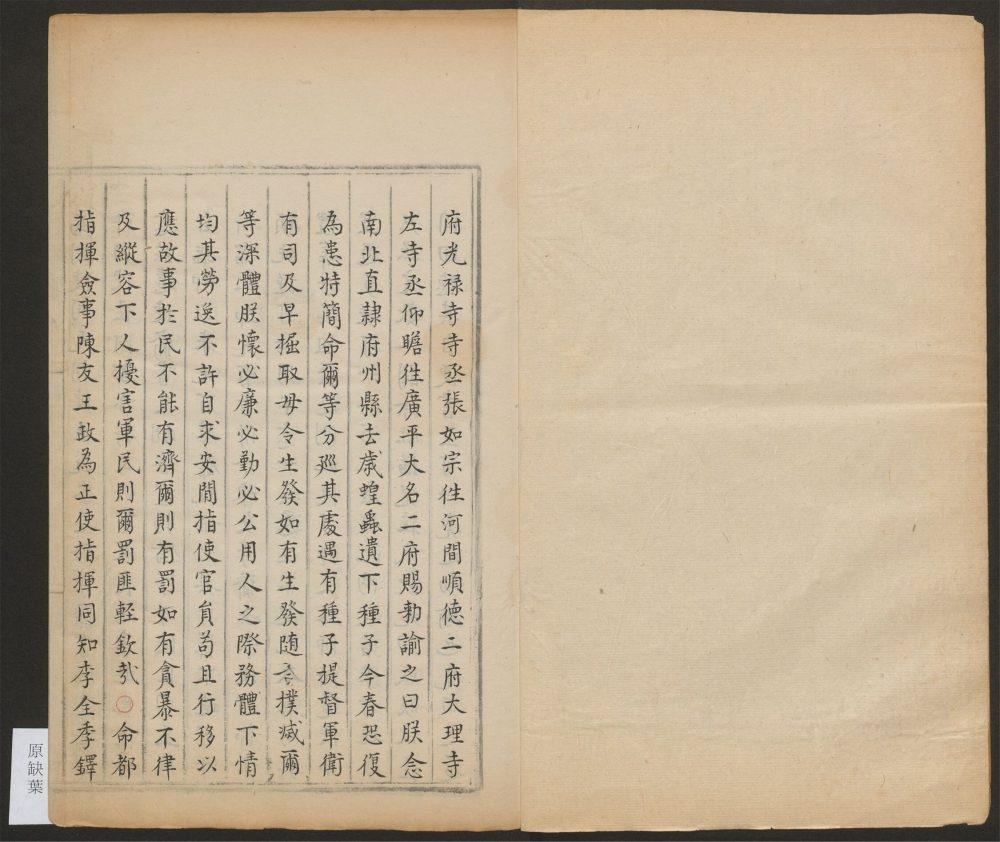 府光禄寺寺丞張如宗徃河間順德二府大理寺
左寺丞仰瞻徃廣平大名二府賜勑諭之曰朕念
南北直隸府州縣去歳蝗蟲遺下種子今春恐復
為患特簡命爾等分廵其處遇有種子提督軍衛
有司及早掘取毋令生發如有生發随令撲滅爾
等深體朕懷必廉必勤必公用人之際務體下情
均其勞逸不許自求安閒指使官員苟且行移以
應故事扵民不能有濟爾則有罰如有貪暴不律
及縱容下人擾害軍民則爾罰匪軽欽㢤○命都
指揮僉事陳友王政為正使指揮同知李全季鐸
原缺葉